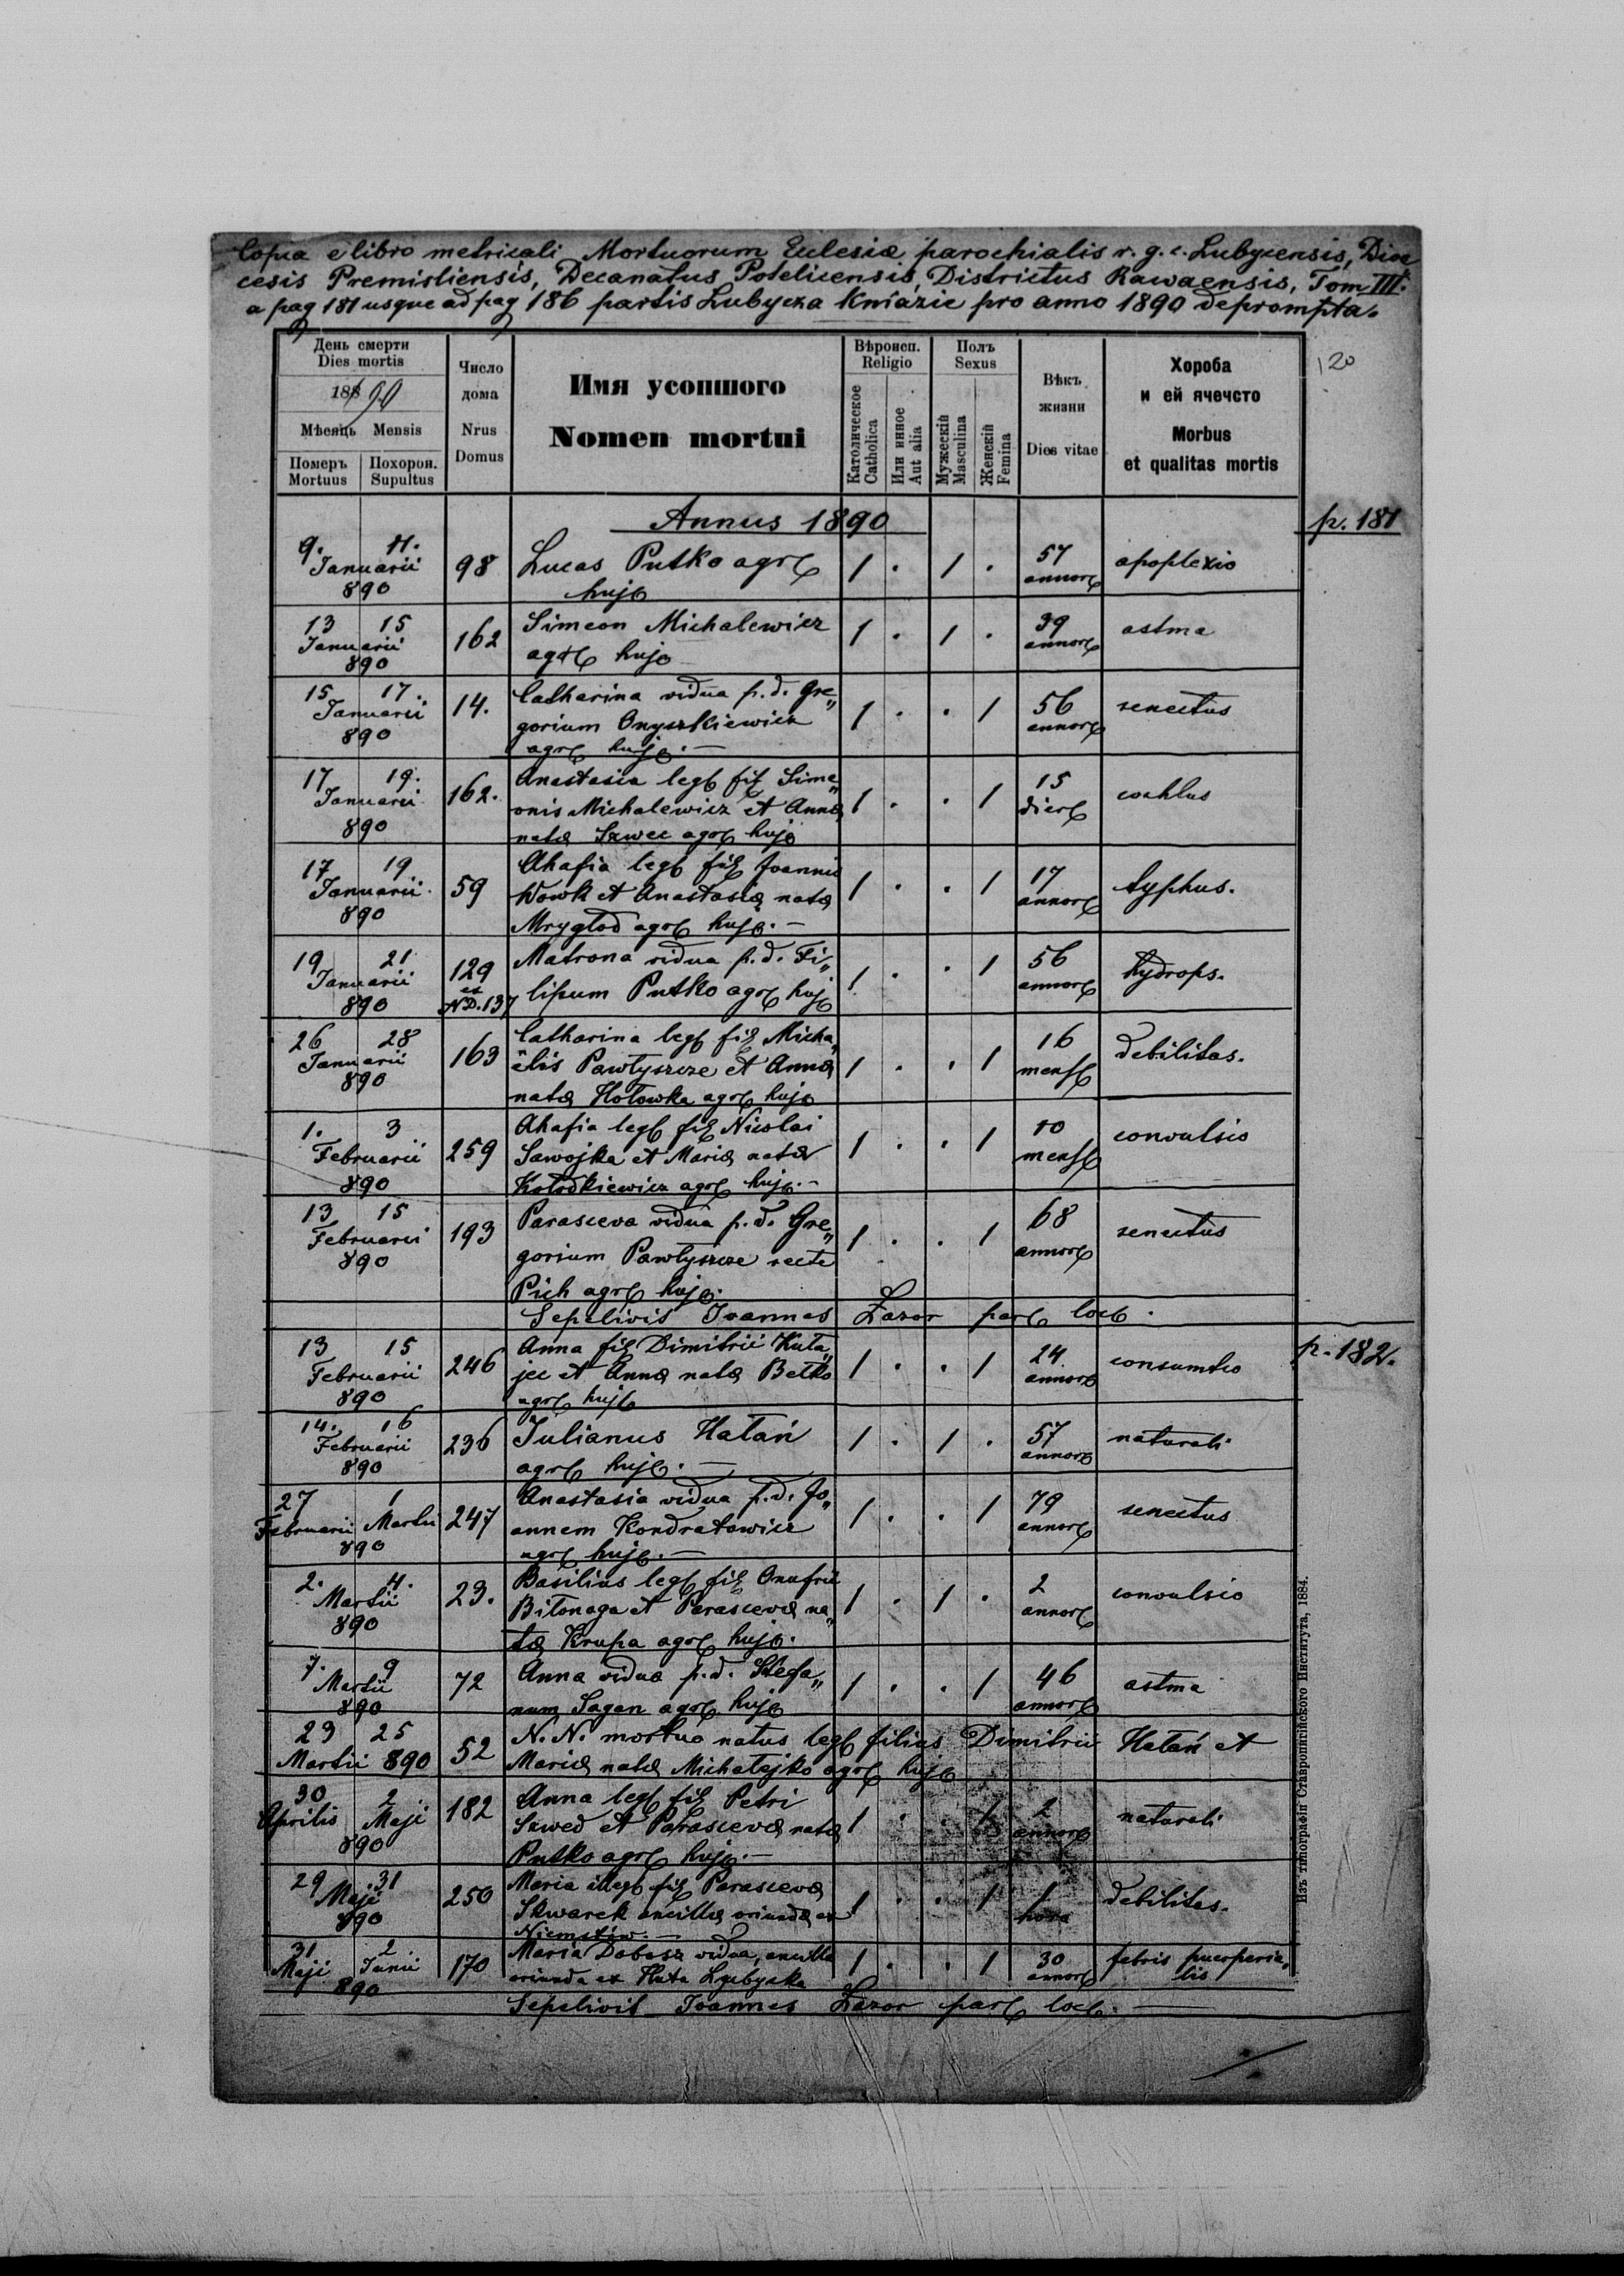 Copia e libro metricali Mortuorum Eclesiæ parochialis r. g. c. Lubycensis, Dioe
cesis Premisliensis, Decanatus Potelicensis, Districtus Rawaensis, Tom III.
a pag 181 usque ad pag 186 partis Lubycza Kniazie pro anno 1890 deprompta.
День смерти
Dies mortis
188 90
Мѣсяць Mensis
Померъ Похорон.
Mortuus Supultus
Число
дома
Nrus
Domus
Имя усопшого
Nomen mortui
Вѣроисп.
Religio
Католическое
Catholica
Или инное
Aut alia
Полъ
Sexus
Мужескій
Masculina
Женскій
Femina
Вѣкъ
жизни
Dies vitae
Хороба
и ей ячечсто
Morbus
et qualitas mortis
120
Annus 1890
p. 181
9. 11.
Januarii
890
98
Lucas Putko agrc
hujc
1 . 1 .
57
annorc
apoplexio
13 15
Januarii
890
162
Simeon Michalewicz
agrc hujc
1 . 1 .
39
annorc
astma
15 17.
Januarii
890
14.
Catharina vidua p.d. Gre„
gorium Onyszkiewicz
agrc hujc. —
1 . . 1
56
annorc
senectus
17 19.
Januarii
890
162.
Anastasia legc filc Sime„
onis Michalewicz et Annæ
natæ Szwec agrc hujc
1 . . 1
15
dierc
17 19
Januarii
890
59
Ahafia legc filc Joannis
Wowk et Anastasiæ natæ
Mrygłod agrc hujc. —
1 . . 1
17
annorc
typhus.
19 21
Januarii
890
129
ex
ND. 137
Matrona vidua p.d. Fi„
lipum Putko agrc hujc
1 . . 1
56
annorc
hydrops.
26 28
Januarii
890
163
Catharina legc filc Micha„
ëlis Pawłyszcze et Annæ
natæ Hołowka agrc hujc
1 . . 1
16
mensc
debilitas.
1. 3
Februarii
890
259
Ahafia legc filc Nicolai
Sawojka et Mariæ natæ
Kołodkiewicz agrc hujc. —
1 . . 1
10
mensc
convulsio
13 15
Februarii
890
193
Parasceva vidua p.d. Gre„
gorium Pawłyszcze recte
Pich agrc hujc.
1 . . 1
68
annorc
senectus
Sepelivit Joannes Lazor parc locc.
13 15
Februarii
890
246
Anna filc Dimitrii Kuta„
jec et Annæ natæ Bełko
agrc hujc
1 . . 1
24
annorc
consumtio
p. 182.
14. 16
Februarii
890
236
Julianus Hałań
agrc hujc. —
1 . 1 .
57
annorc
naturali
27 1
Februarii Martii
890
247
Anastasia vidua p.d. Jo„
annem Kondratowicz
agrc hujc. —
1 . . 1
79
annorc
senectus
2. 4.
Martii
890
23.
Basilius legc filc Onufrii
Bitonoga et Parascevæ na„
tæ Krupa agrc hujc.
1 . 1 .
2
annorc
convulsio
7. 9
Martii
890
72
Anna vidua p.d. Stefa„
num Sagan agrc hujc
1 . . 1
46
annorc
astma
23 25
Martii 890
52
N. N. mortuo natus legc filius Dimitrii Hałań et
Mariæ natæ Michałejko agrc hujc
30 2
Aprilis Maji
890
182
Anna legc filc Petri
Szwed et Parascevæ natæ
Putko agrc hujc. —
1 . . 1
2
annorc
naturali
29 31
Maji
890
250
Maria illegc filc Parascevæ
Skwarek ancillæ oriundæ ex
Niemstów. —
1 . . 1
1
hora
debilitas.
31 2
Maji Junii
890
170
Maria Dobosz vidua, ancilla
oriunda ex Huta Lubycka
1 . . 1
30
annorc
febris puerperia„
lis
Sepelivit Joannes Lazor parc locc. —
Изъ типографіи Ставропигійского Института, 1884.